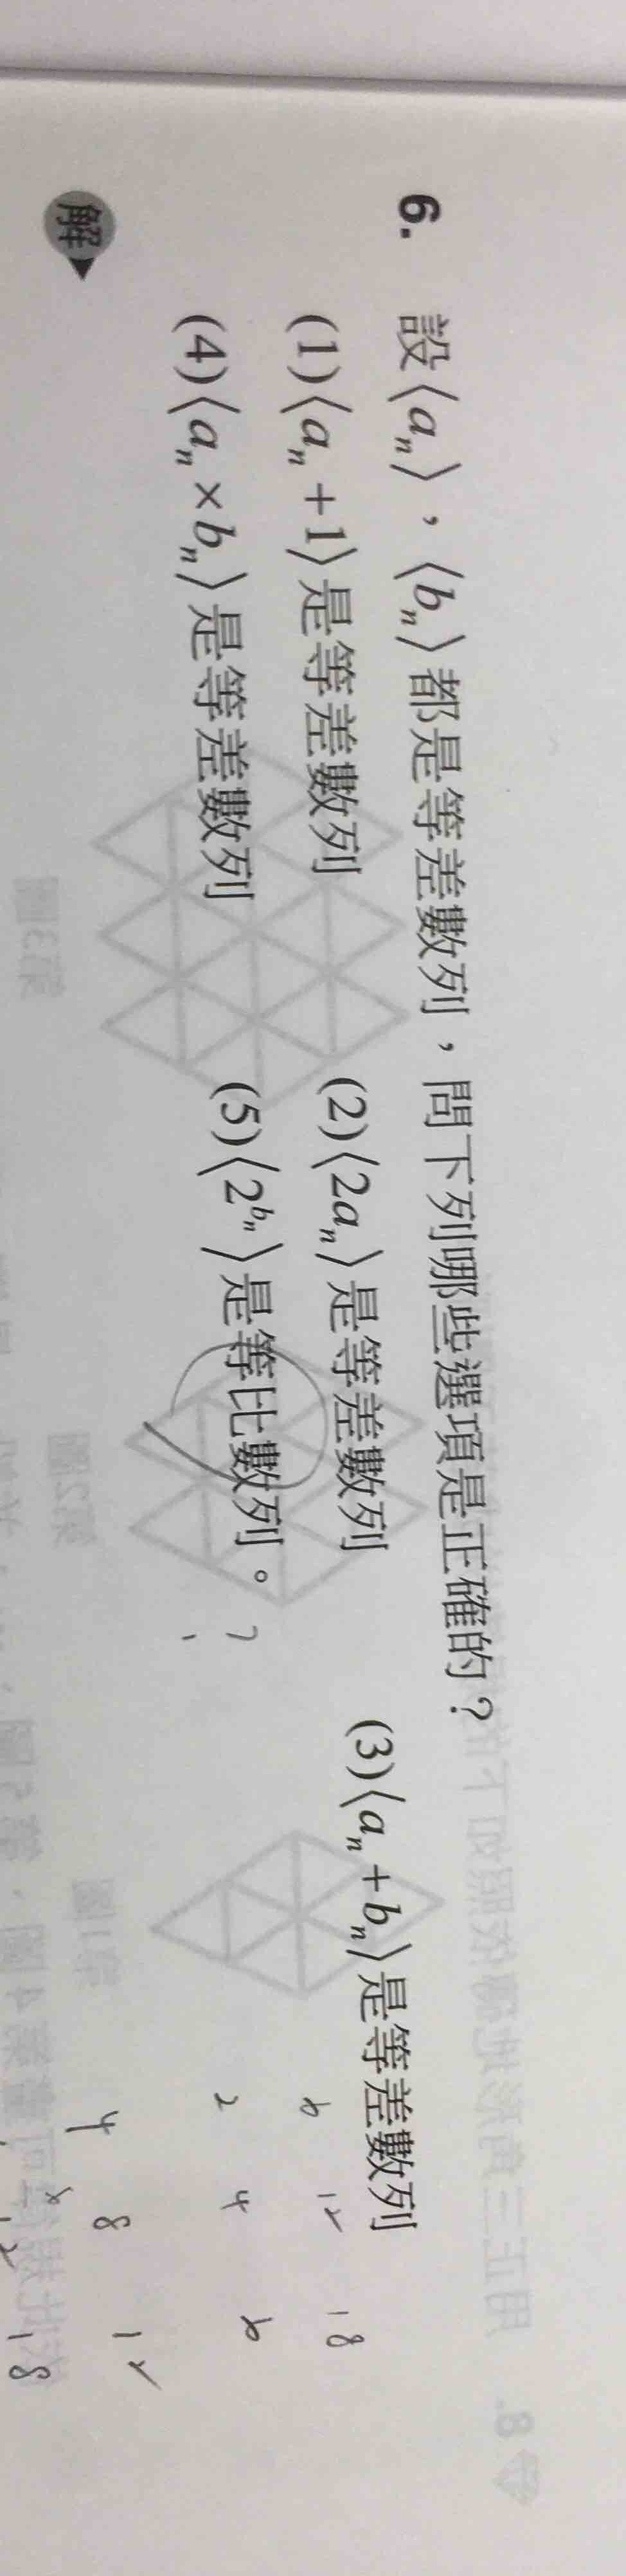 6. 設⟨aₙ⟩，⟨bₙ⟩都是等差數列，問下列哪些選項是正確的？
(1)⟨aₙ+1⟩是等差數列 (2)⟨2aₙ⟩是等差數列 (3)⟨aₙ+bₙ⟩是等差數列
(4)⟨aₙ×bₙ⟩是等差數列 (5)⟨2^{bₙ}⟩是等比數列。
解
6 12 18
2 4 6
4 8 12
18